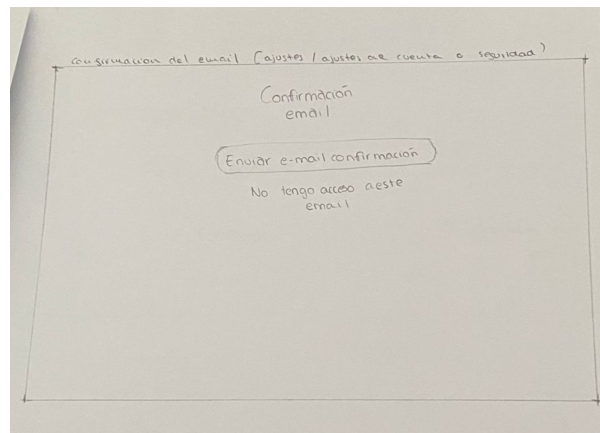 confirmacion del email (ajustes / ajustes de cuenta o seguridad)
Confirmación
email
Enviar e-mail confirmación
No tengo acceso a este
email